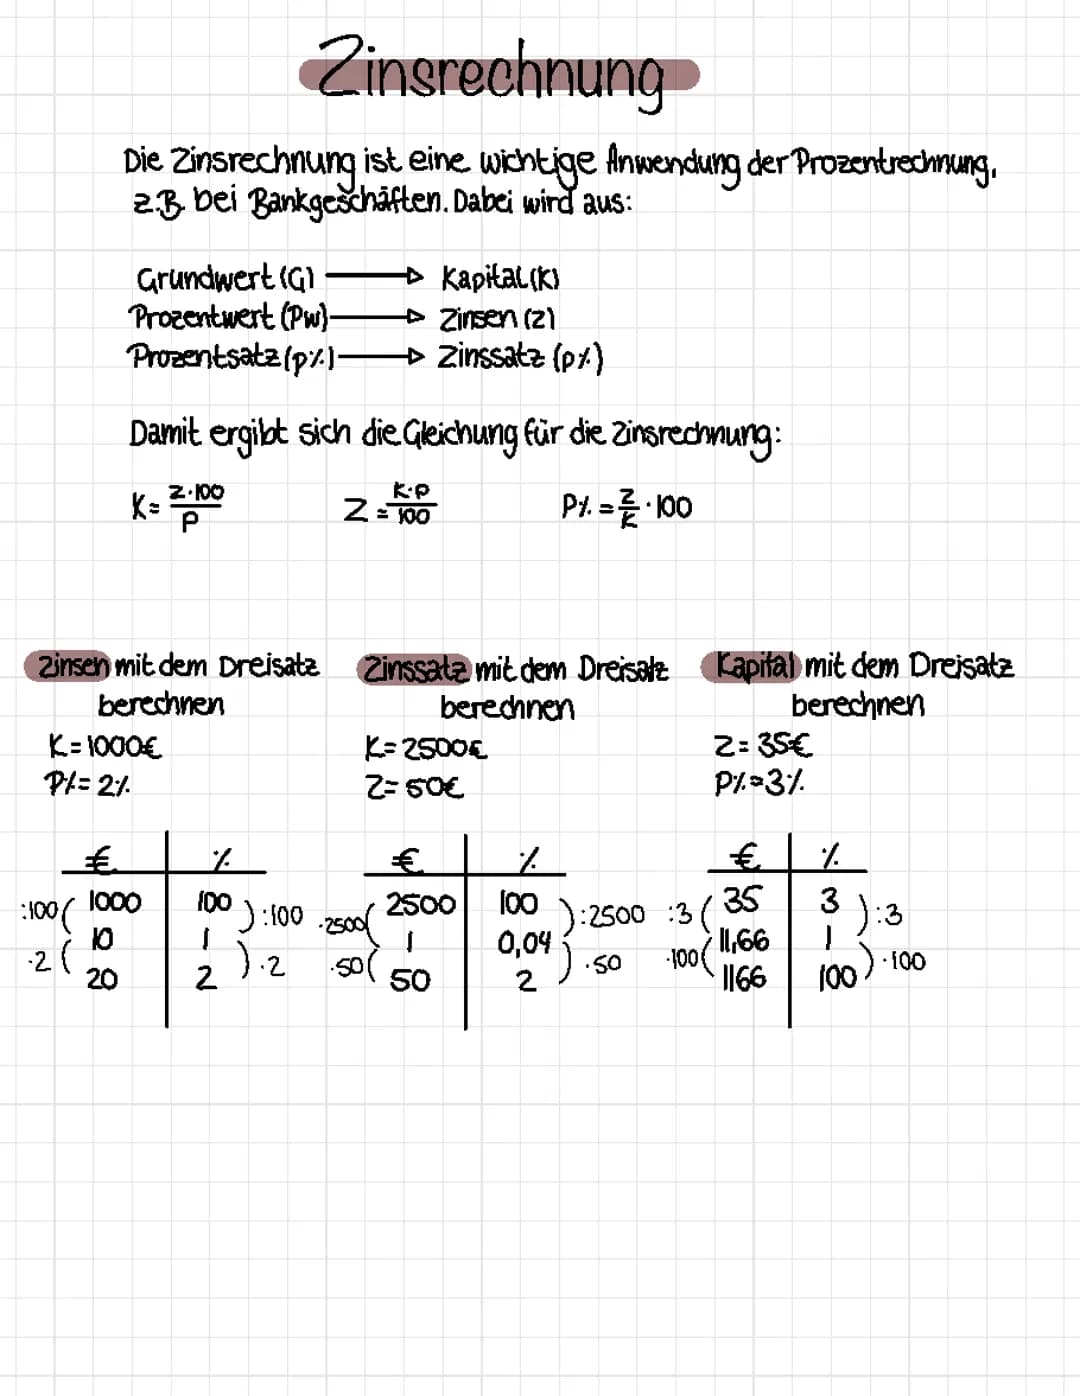 Zinsrechnung
Die Zinsrechnung ist eine wichtige Anwendung der Prozentrechnung,
z.B. bei Bankgeschäften. Dabei wird aus:
Grundwert (G) → Kapital (K)
Prozentwert (Pw) → Zinsen (Z)
Prozentsatz (p%) → Zinssatz (p%)
Damit ergibt sich die Gleichung für die Zinsrechnung:
K = Z·100/P Z = K·P/100 P% = Z/K · 100
Zinsen mit dem Dreisatz
berechnen
K = 1000€
P% = 2%
€ %
:100 1000 100 :100
·2 10 1 ·2
20 2
Zinssatz mit dem Dreisatz
berechnen
K = 2500€
Z = 50€
€ %
·2500 2500 100 :2500
·50 1 0,04 ·50
50 2
Kapital mit dem Dreisatz
berechnen
Z = 35€
P% = 3%
€ %
:3 35 3 :3
·100 11,66 1 ·100
1166 100